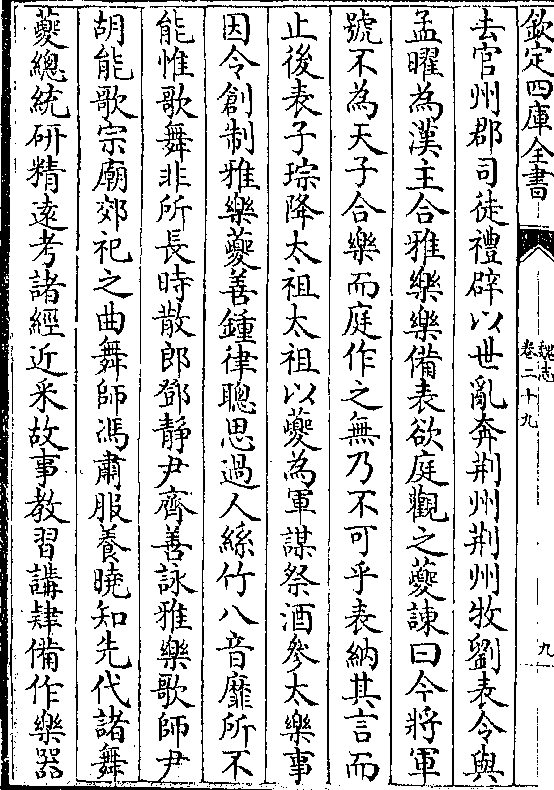 欽定四庫全書
魏志
卷二十九
九
去官州郡司徒禮辟以世亂奔荆州荆州牧劉表令與
孟曜為漢主合雅樂樂備表欲庭觀之夔諫曰今將軍
號不為天子合樂而庭作之無乃不可乎表納其言而
止後表子琮降太祖太祖以夔為軍謀祭酒參太樂事
因令創制雅樂夔善鍾律聰思過人絲竹八音靡所不
能惟歌舞非所長時散郎鄧靜尹齊善詠雅樂歌師尹
胡能歌宗廟郊祀之曲舞師馮肅服養曉知先代諸舞
夔總統研精遠考諸經近釆故事教習講肄備作樂器